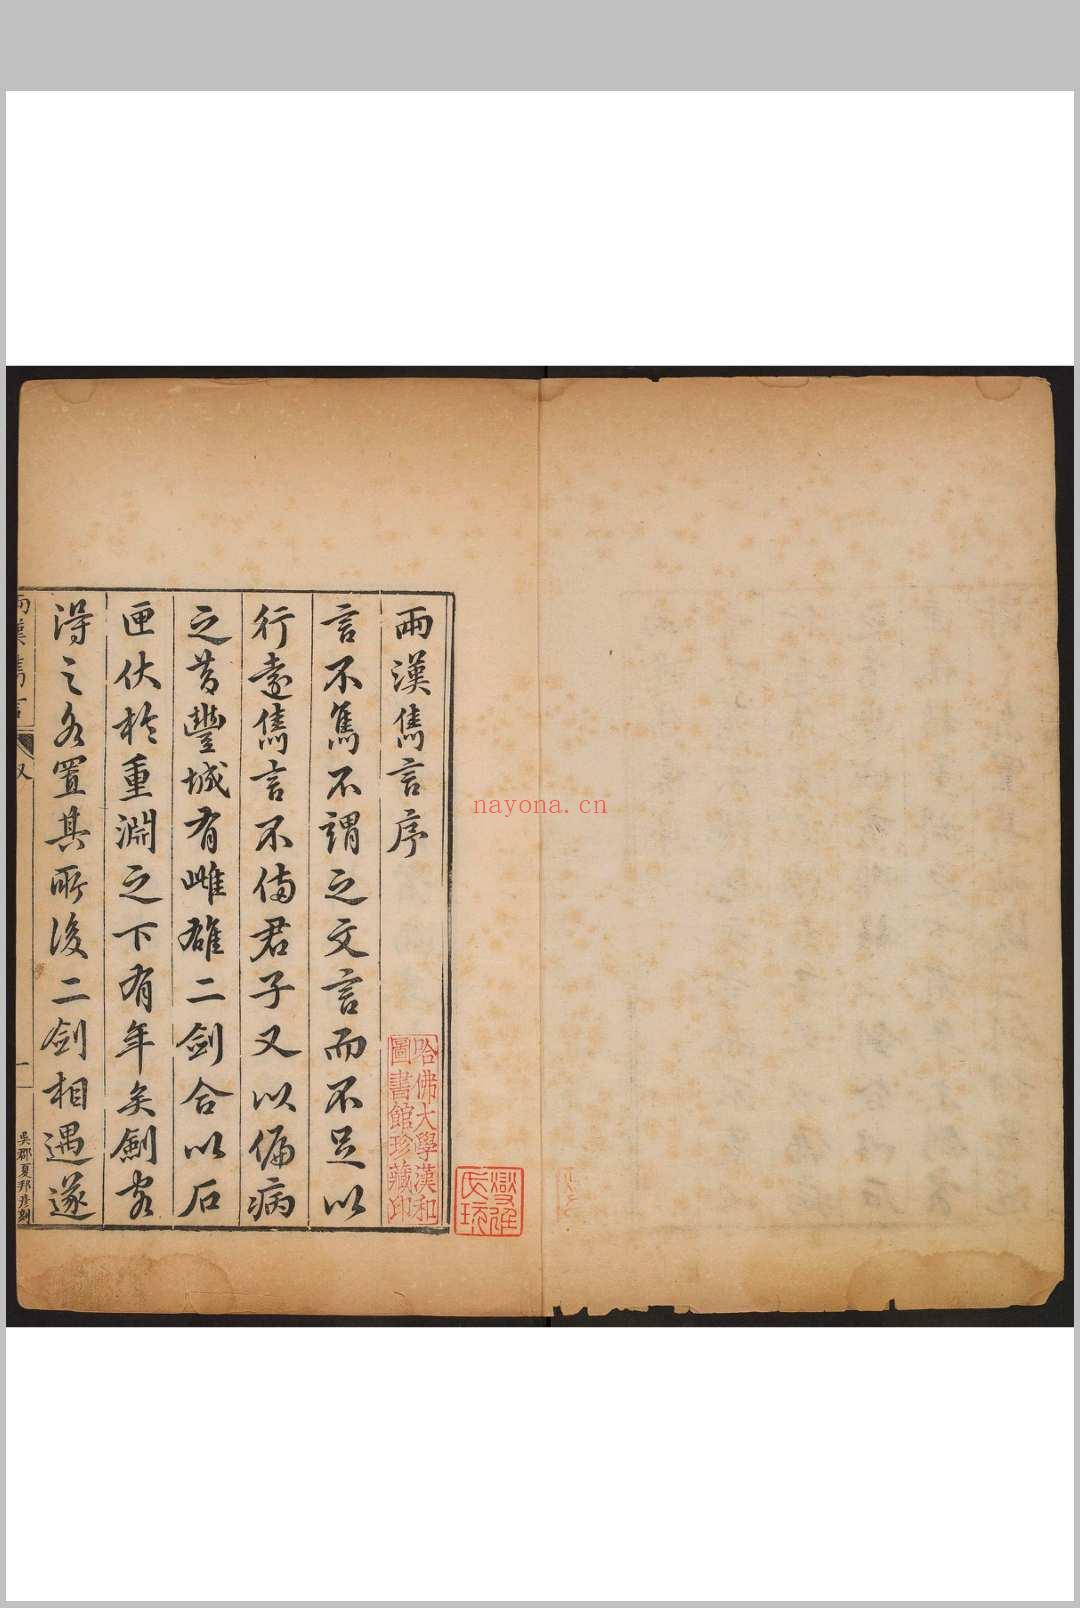 兩漢雋言序
言不雋不謂之文言而不足以
行遠雋言不備君子又以偏病
之昔豐城有雌雄二劍合以石
匣伏於重淵之下有年矣劍客
得之各置其所後二劍相遇遂
兩漢雋言
叙
一
吳郡夏邦彥刻
哈佛大學漢和
圖書館珍藏印
nayona.cn